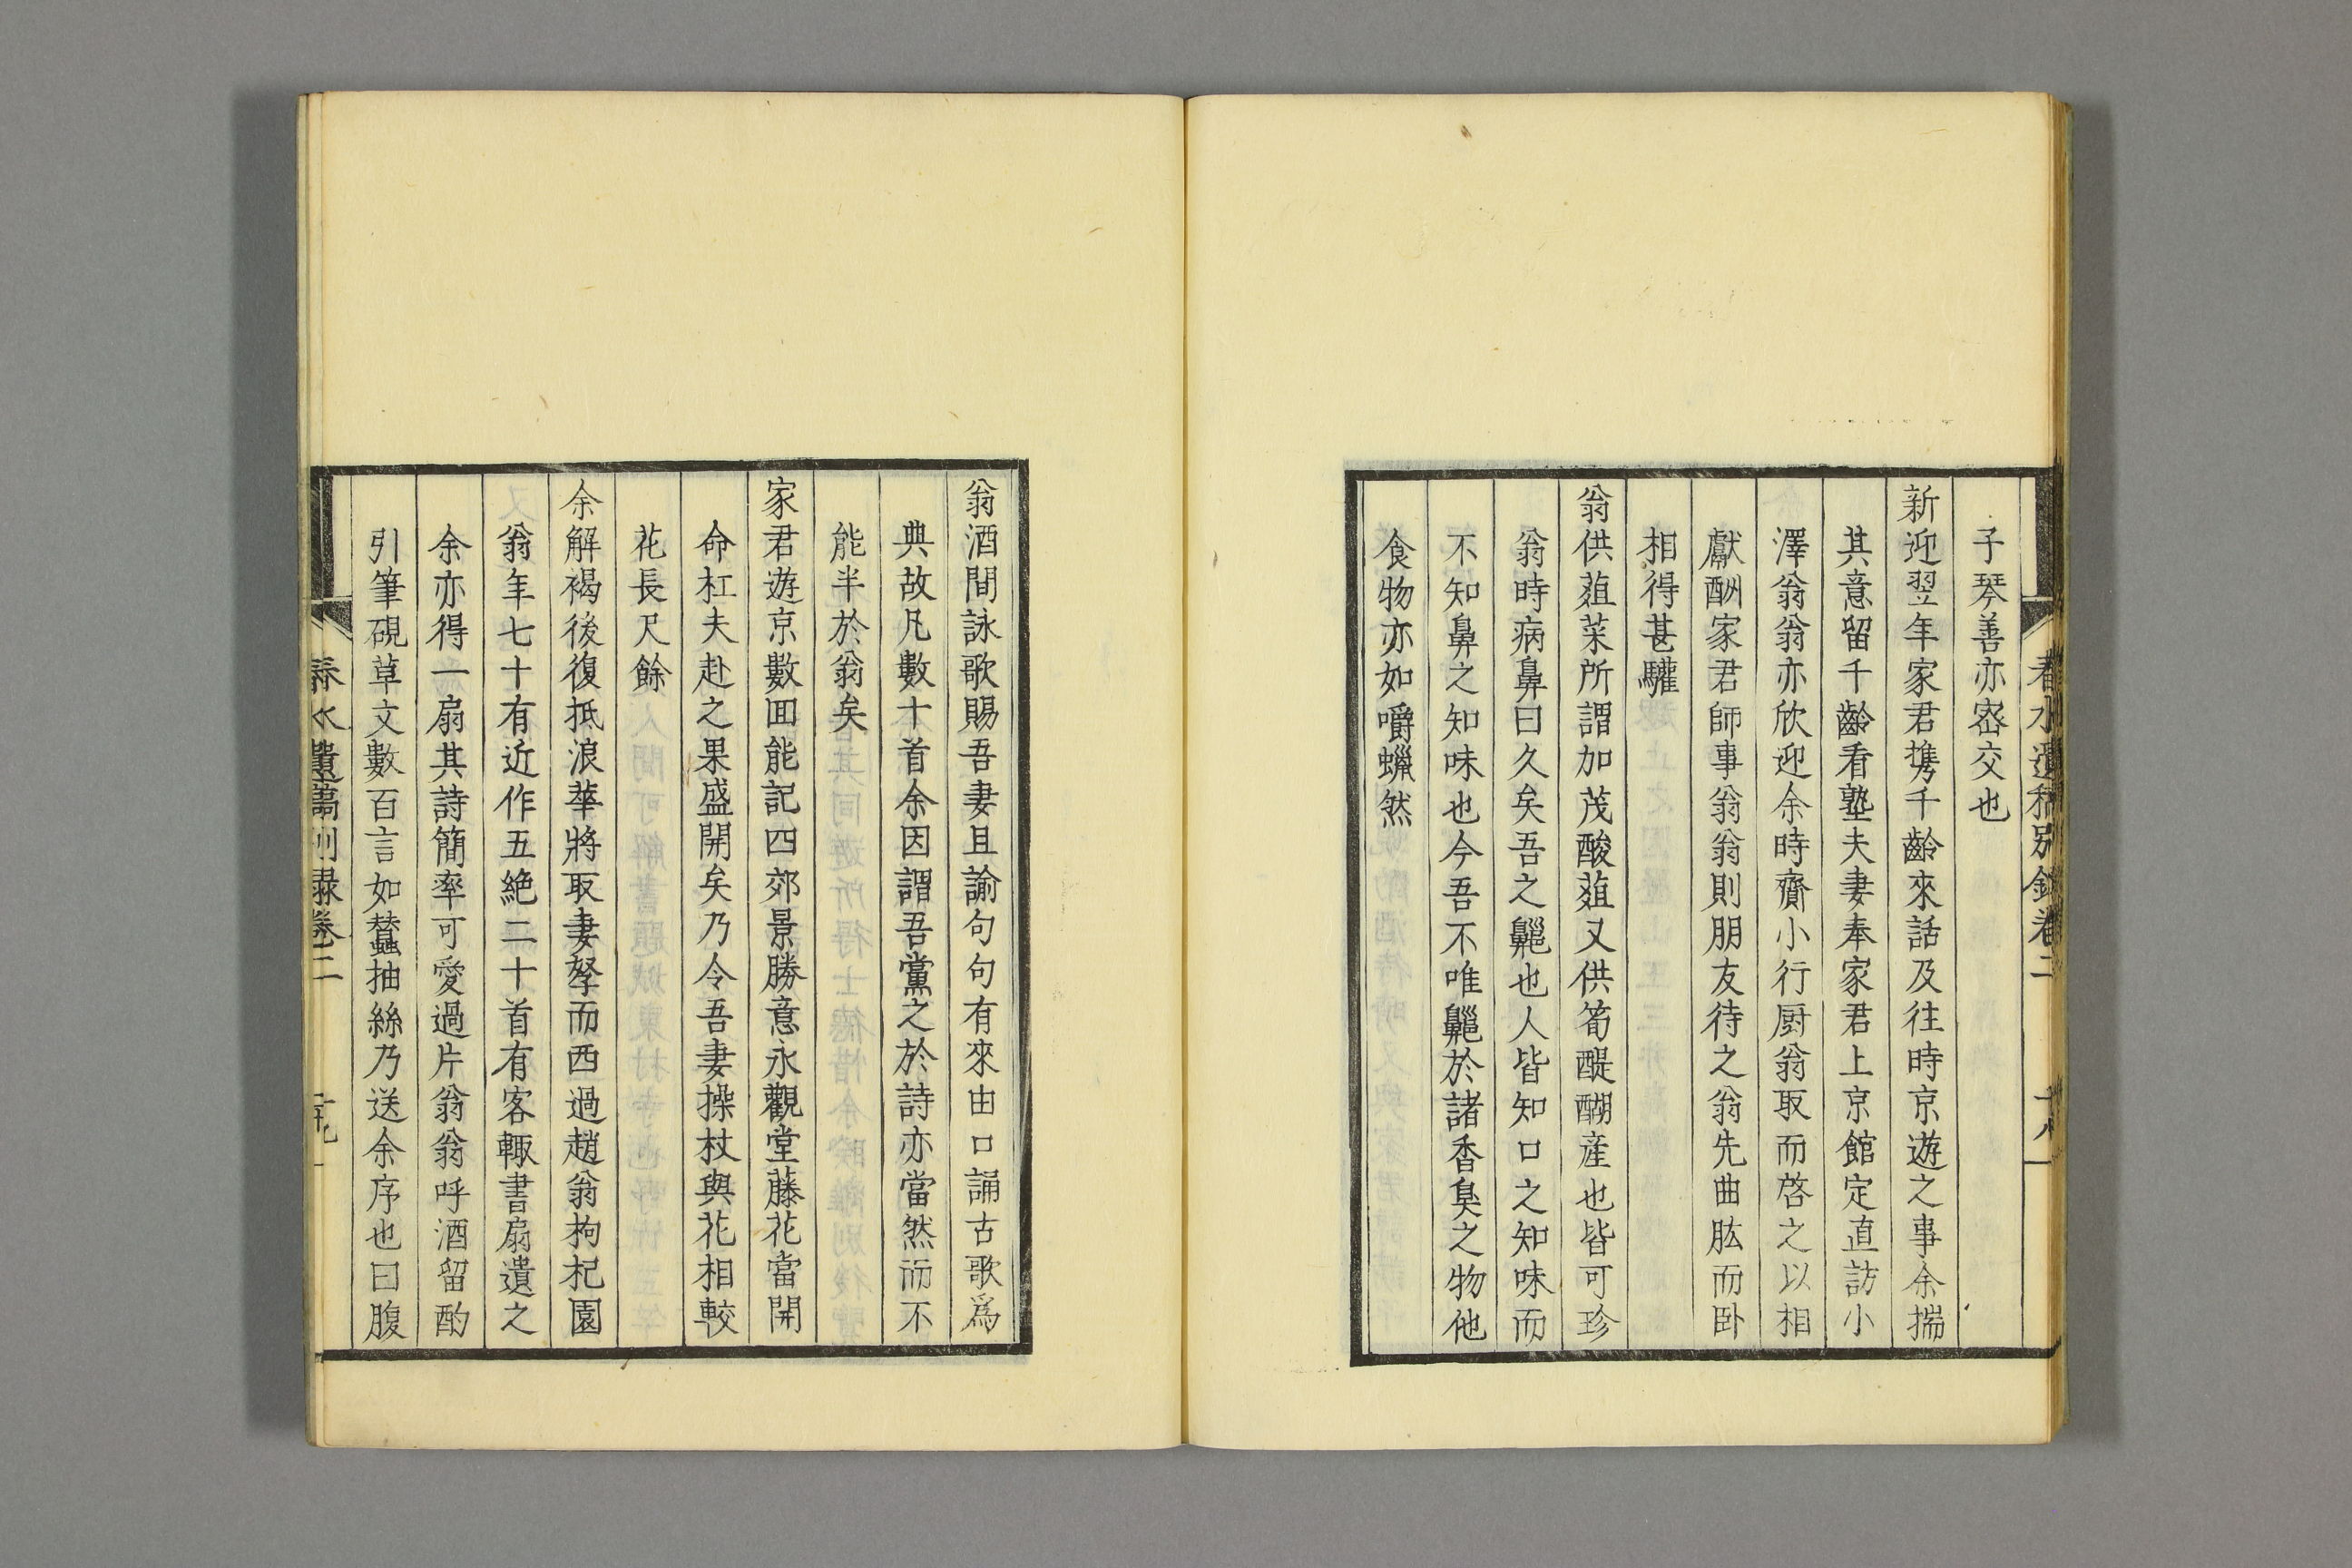 春水遺稿別錄卷二
十八
子琴善亦密交也
新迎翌年家君携千齡來話及往時京遊之事余揣
其意留千齡看塾夫妻奉家君上京館定直訪小
澤翁翁亦欣迎余時齎小行厨翁取而啓之以相
獻酬家君師事翁翁則朋友待之翁先曲肱而臥
相得甚驩
翁供葅菜所謂加茂酸葅又供筍醍醐産也皆可珍
翁時病鼻曰久矣吾之齆也人皆知口之知味而
不知鼻之知味也今吾不唯齆於諸香臭之物他
食物亦如嚼蠟然
翁酒間詠歌賜吾妻且諭句句有來由口誦古歌爲
典故凡數十首余因謂吾黨之於詩亦當然而不
能半於翁矣
家君遊京數囬能記四郊景勝意永觀堂藤花當開
命杠夫赴之果盛開矣乃令吾妻操杖與花相較
花長尺餘
余解褐後復抵浪華將取妻孥而西過趙翁枸杞園
翁年七十有近作五絶二十首有客輙書扇遺之
余亦得一扇其詩簡率可愛過片翁翁呼酒留酌
引筆硯草文數百言如蠶抽絲乃送余序也曰腹
春水遺稿別錄卷二
十九